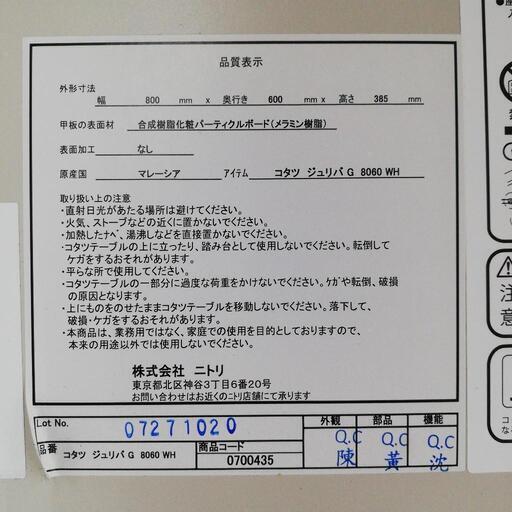 品質表示
外形寸法
幅 800 mm x 奥行き 600 mm x 高さ 385 mm
甲板の表面材 合成樹脂化粧パーティクルボード(メラミン樹脂)
表面加工 なし
原産国 マレーシア アイテム コタツ ジュリパ G 8060 WH
取り扱い上の注意
・直射日光があたる場所は避けてください。
・火気、ストーブなどの近くに置かないでください。
・加熱したナベ、湯沸しなどを直接置かないでください。
・コタツテーブルの上に立ったり、踏み台として使用しないでください。転倒して
ケガをするおそれがあります。
・平らな所で使用してください。
・コタツテーブルの一部分に過度な荷重をかけないでください。ケガや転倒、破損
の原因となります。
・上にものをのせたままコタツテーブルを移動しないでください。落下して、
破損・ケガをするおそれがあります。
・本商品は、業務用ではなく、家庭での使用を目的としていますので、
本来の用途以外では使用しないでください。
株式会社 ニトリ
東京都北区神谷3丁目6番20号
お問い合わせはお近くのニトリ店舗にて承ります
Lot No. 07271020
外観 部品 機能
品番 コタツ ジュリパ G 8060 WH
商品コード
0700435
Q.C Q.C Q.C
陳 黃 沈
注
意